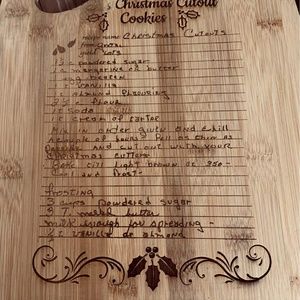 's Christmas Cutout
Cookies
recipe name Christmas Cutouts
from
yield
1 1/2 c powdered sugar
1 c margarine or butter
1 egg beaten
1 t vanilla
almond flavoring
2 1/2 c flour
1 t soda
1 t cream of tartar
Mix in order given and chill
and cut out with your
Christmas cutters.
Bake till light brown at 350-
cool and frost-
Frosting
3 cups Powdered sugar
butter
milk enough for spreading-
vanilla or almond